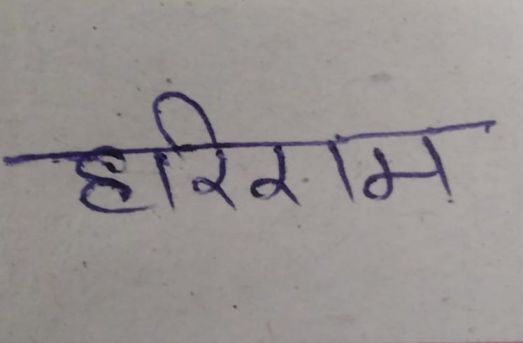 हरिराम